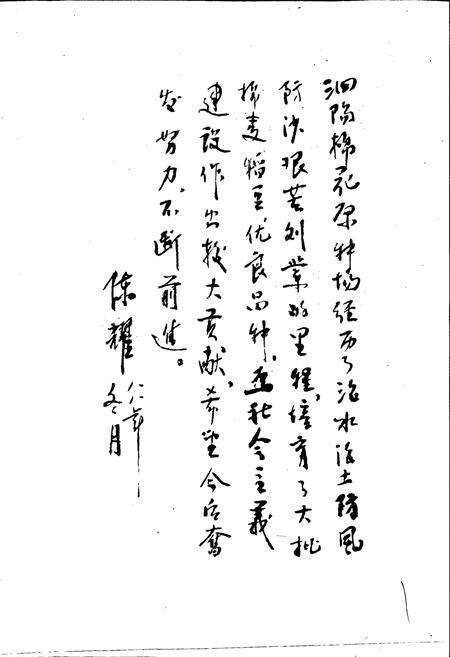 泗阳棉花原种场经历了治水治土防风
防沙艰苦创业的里程，培育了大批
棉麦稻豆优良品种，为社会主义
建设作出较大贡献，希望今后奋
发努力，不断前进。
陈耀
八一年
冬月